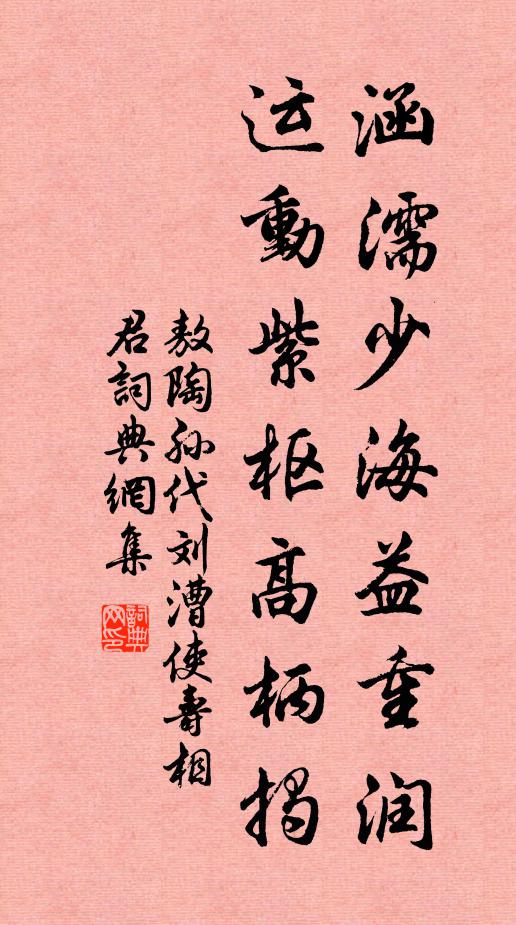 涵濡少海益重润
运動紫枢高柄揭
敖陶孙代刘漕使壽相
君詞典網集
詞典
网印